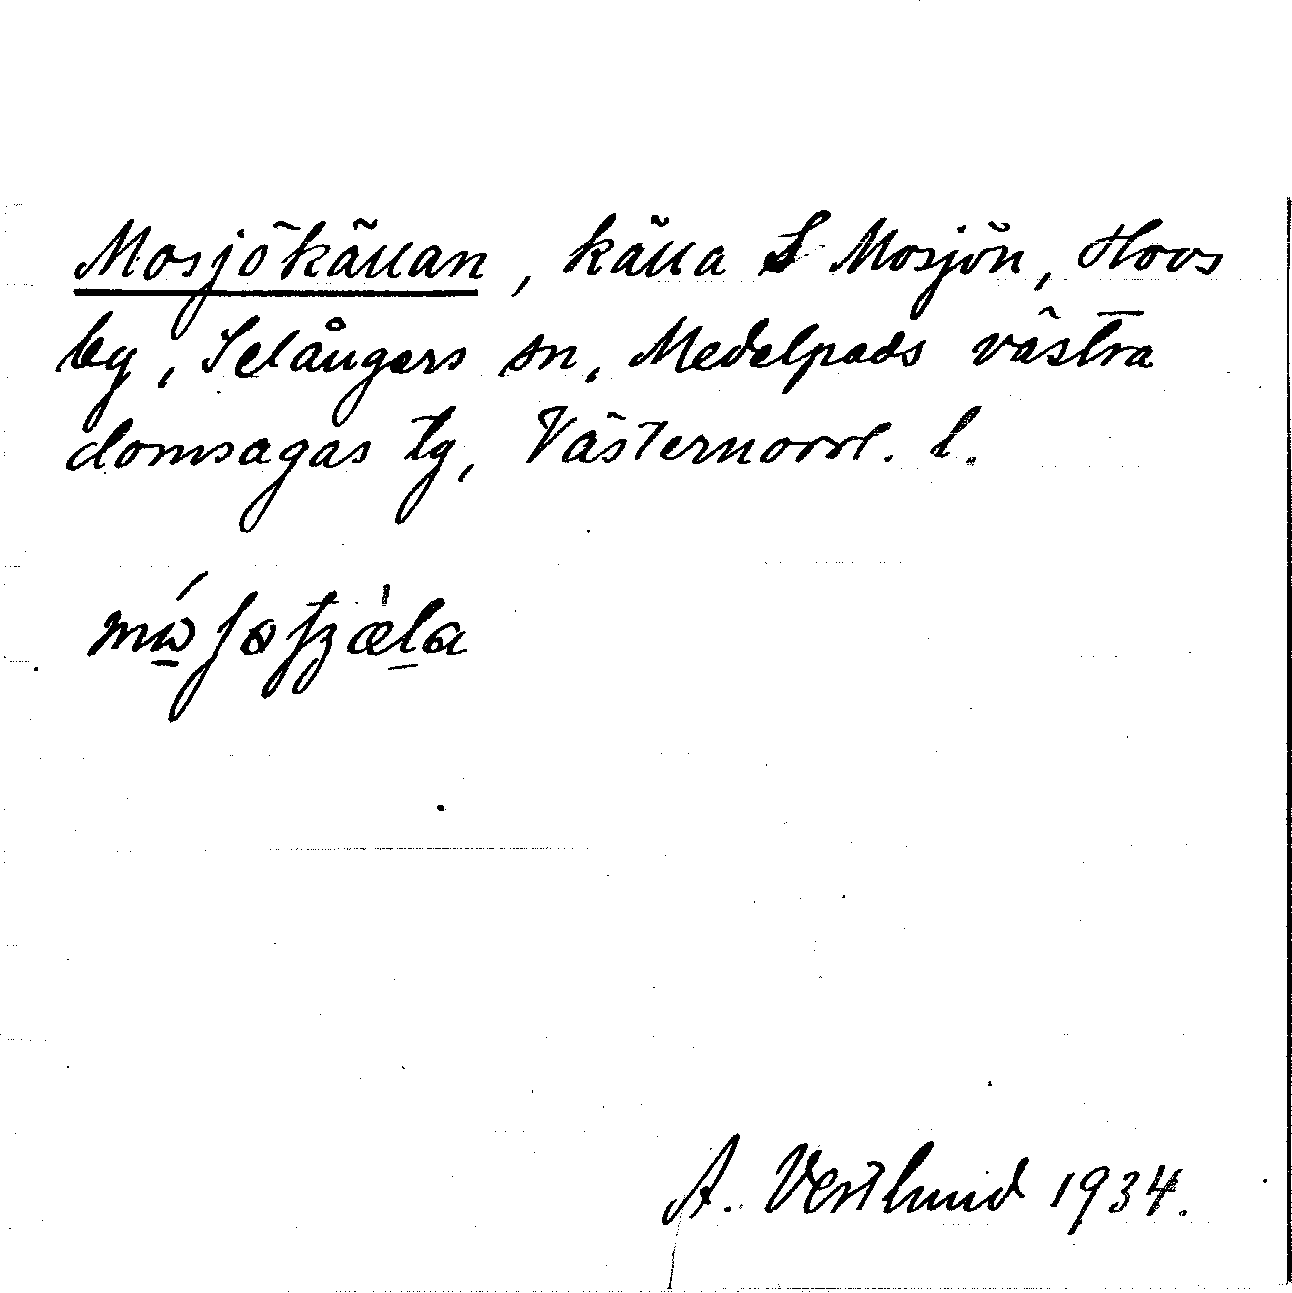 Mosjökällan, källa S Mosjön, Hovs
by, Selångers sn, Medelpads västra
domsagas tg, Västernorrl. l.
A. Vestlund 1934.